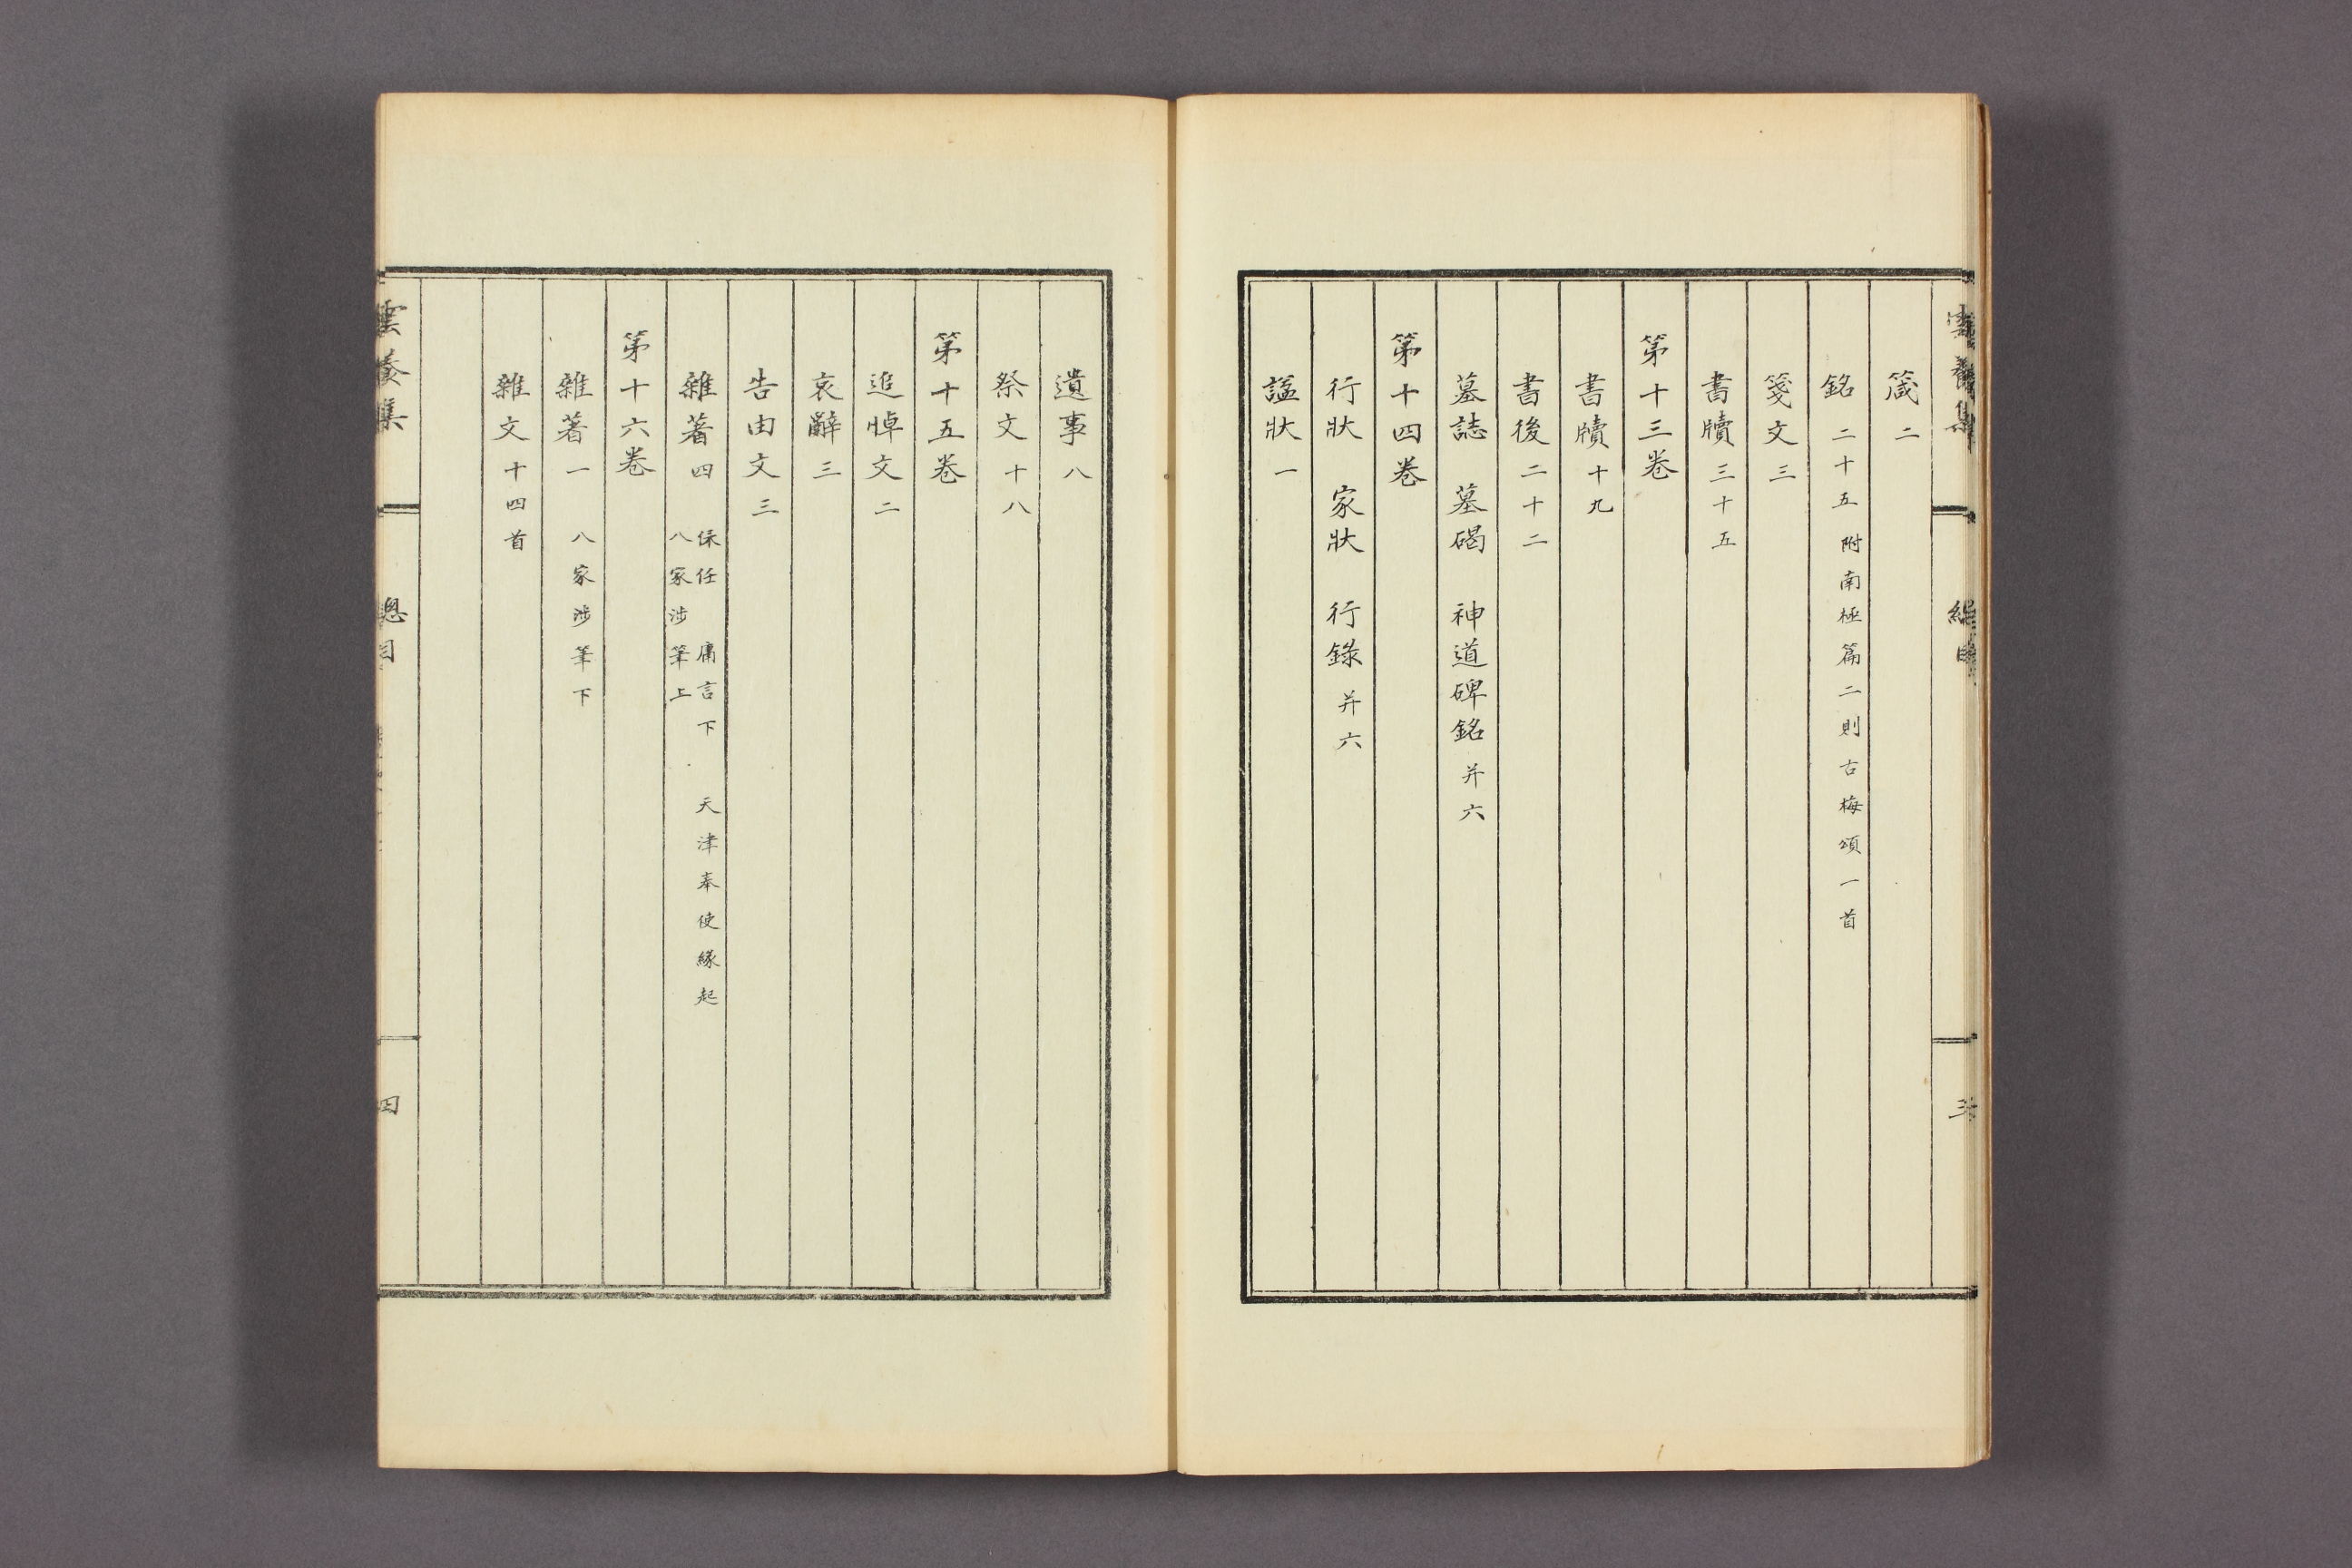 雲養集 總目 三
箴 二
銘 二十五 附南極篇二則古梅頌一首
箋文 三
書牘 三十五
第十三卷
書牘 十九
書後 二十二
墓誌 墓碣 神道碑銘 并六
第十四卷
行狀 家狀 行錄 并六
諡狀 一
遺事 八
祭文 十八
第十五卷
追悼文 二
哀辭 三
告由文 三
雜著 四 保任 庸言下 天津奉使緣起
八家涉筆上
第十六卷
雜著 一 八家涉筆下
雜文 十四首
雲養集 總目 四